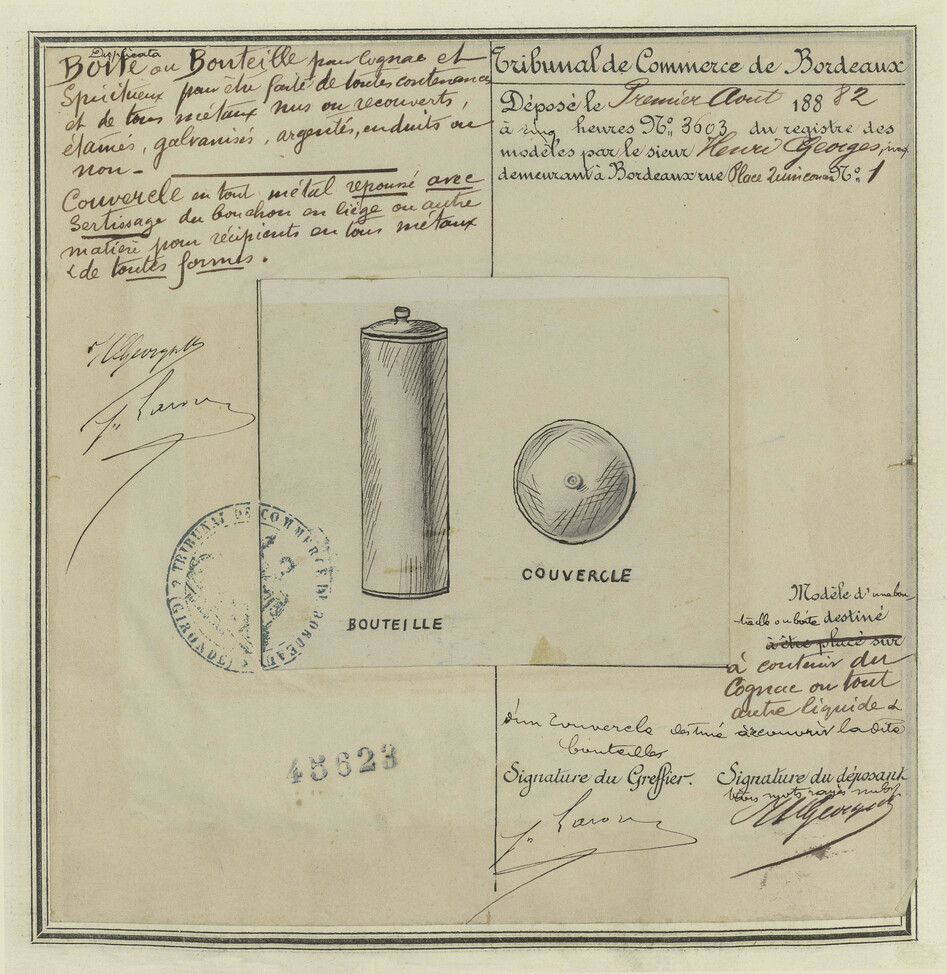 Duplicata
Boîte ou Bouteille pour Cognac et
Spiritueux pour être faite de toutes contenances
et de tous métaux nus ou recouverts,
étamés, galvanisés, argentés, enduits ou
non -
Couvercle en tout métal repoussé avec
Sertissage du bouchon en liège ou autre
matière pour récipients en tous métaux
& de toutes formes.
Tribunal de Commerce de Bordeaux
Déposé le Premier Aout 188 82
à cinq heures No. 3603 du registre des
modèles par le sieur Henri Georges,
demeurant à Bordeaux rue Place Quinconces No. 1
HGeorges
TRIBUNAL DE COMMERCE DE BORDEAUX
(GIRONDE)
BOUTEILLE
COUVERCLE
Modèle d'une bou
teille ou boîte destiné
à être placé sur
à contenir du
Cognac ou tout
autre liquide &
d'un couvercle destiné à recouvrir la dite
bouteille
45623
Signature du Greffier.
Signature du déposant
trois mots rayés nuls
HGeorges